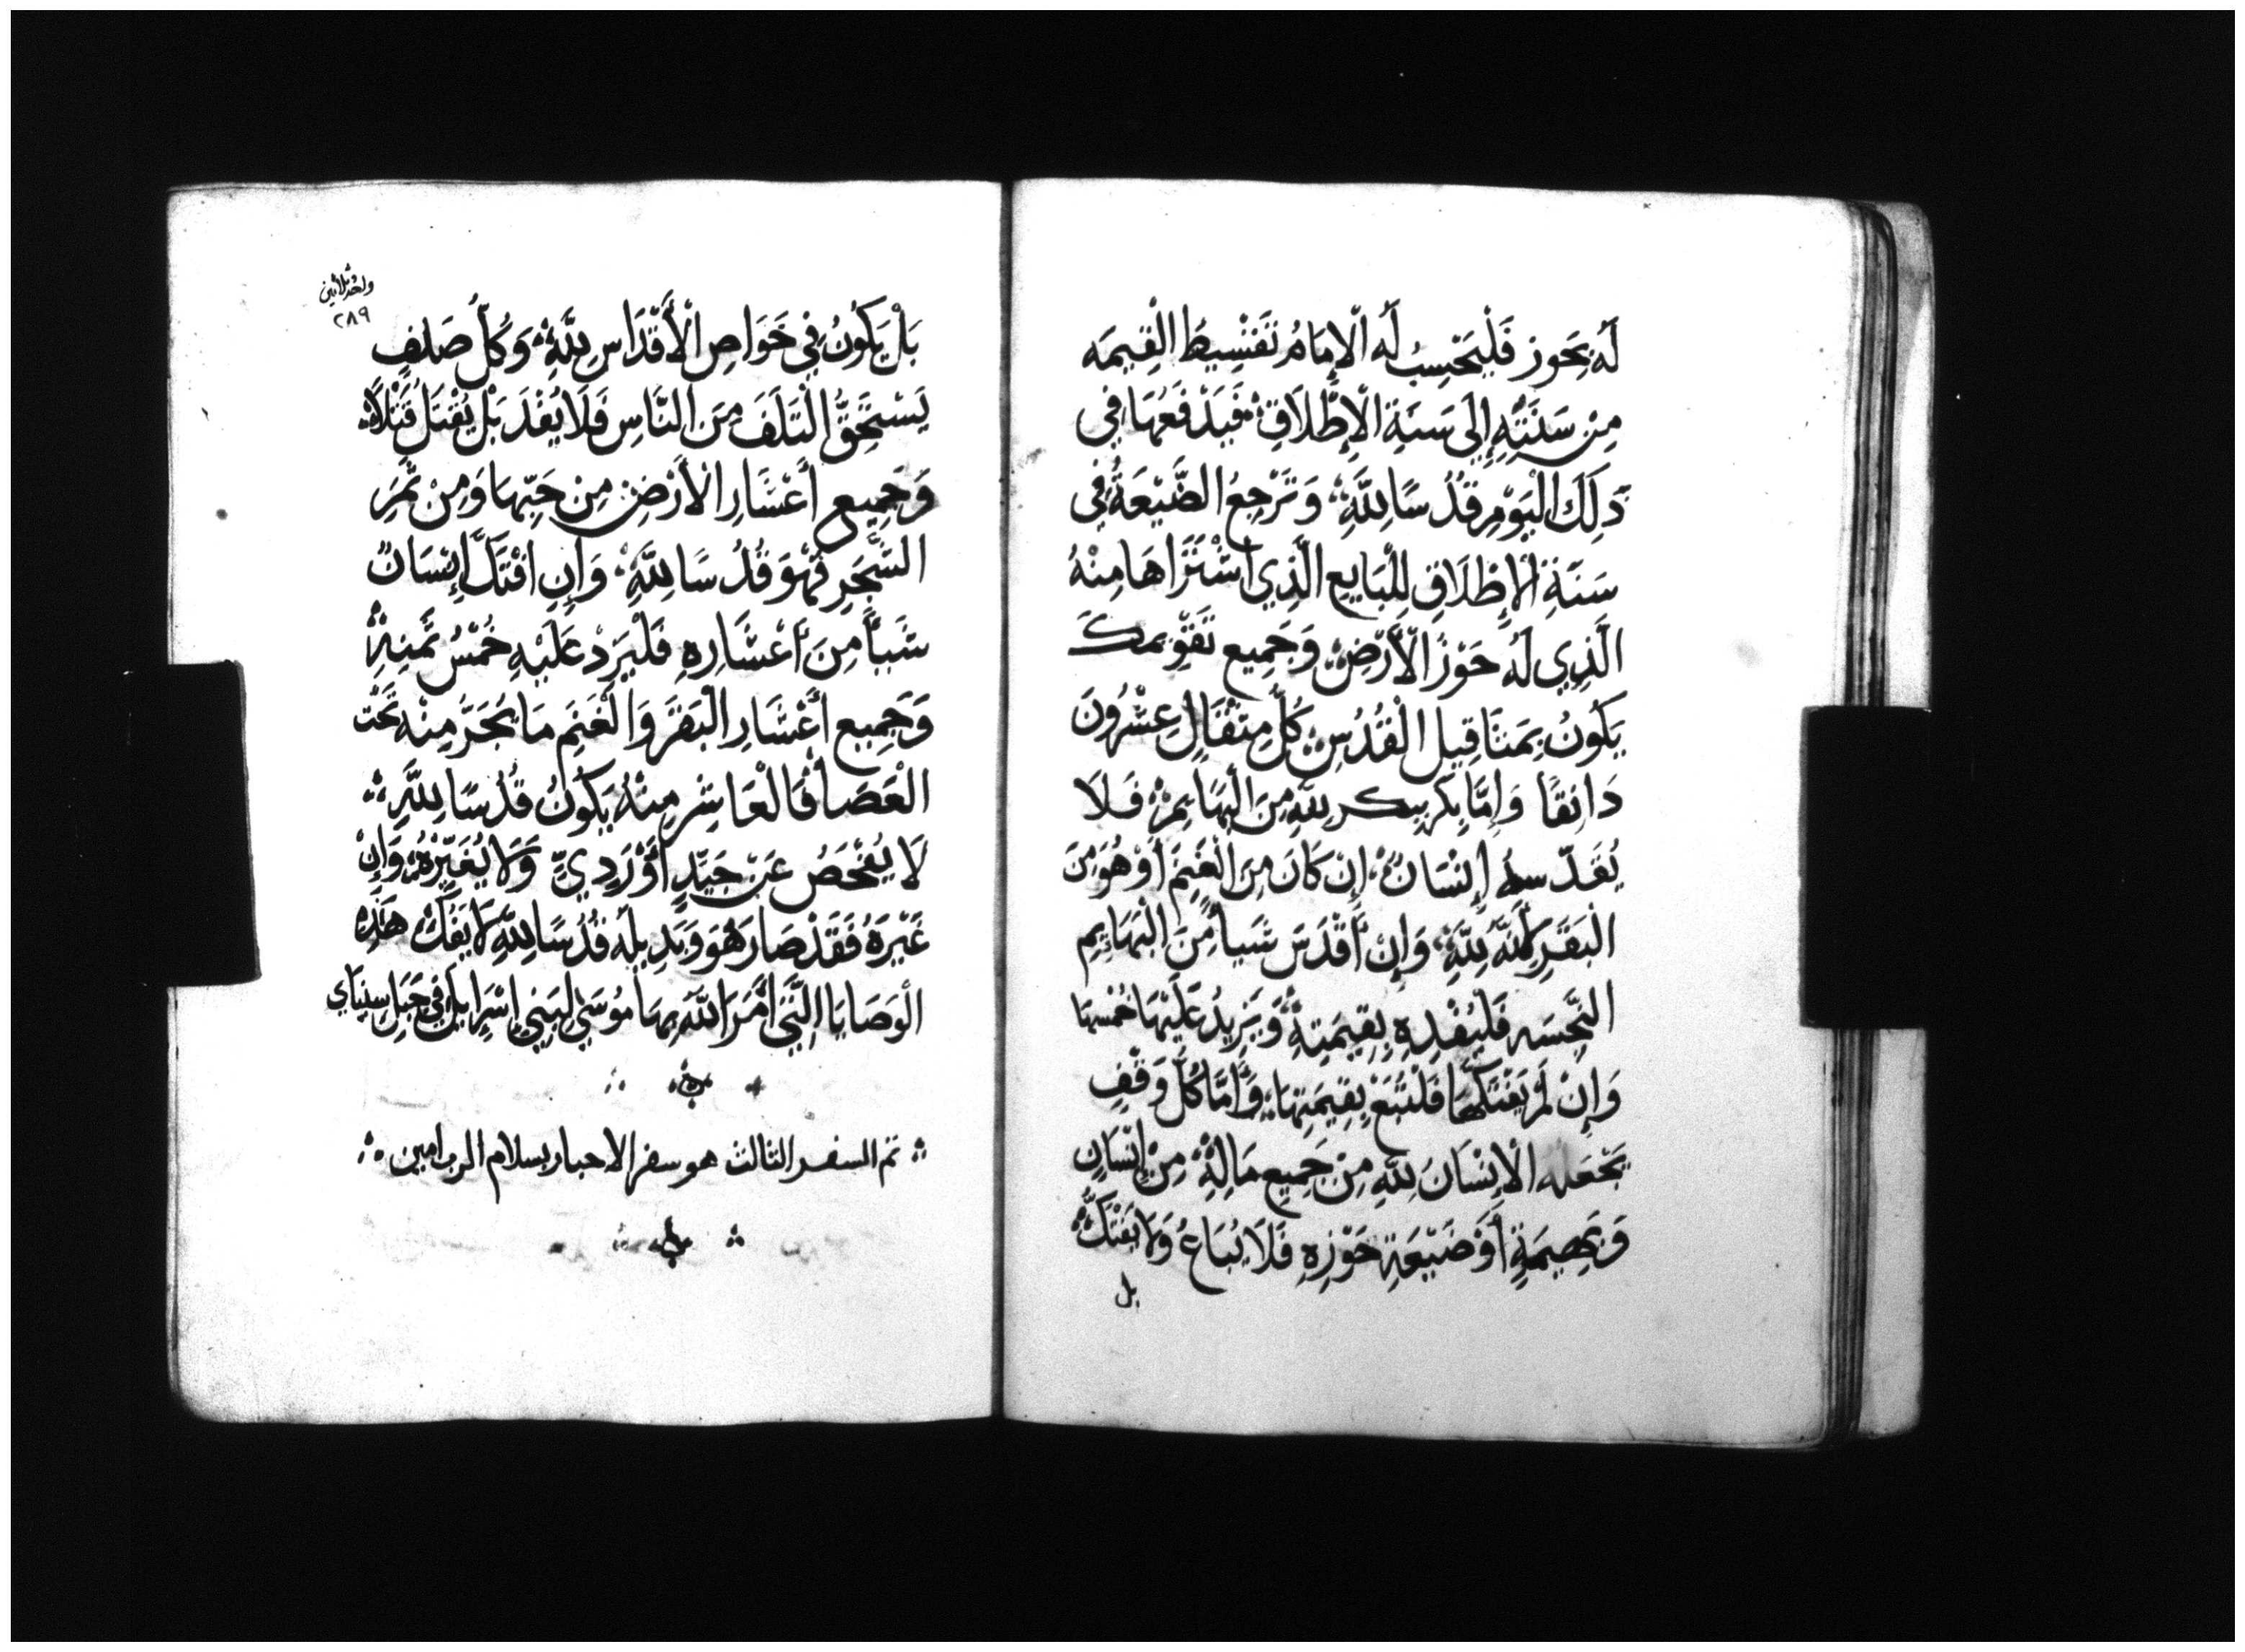 لَهُ بِحَوز فَلْيَحْسِبُ لَه الْإِمَامُ تَقْسِيطُ الْقِيمَه
مِنْ سَنَتِهِ إِلَى سَنَةِ الْإِطْلَاقِ فَيَدْفَعُهَا فِي
ذَلِكَ الْيَوْمِ قُدُسًا لِلَّهِ وَتَرْجِعُ الضَّيْعَةُ فِي
سَنَةِ الْإِطْلَاقِ لِلْبَايِعِ الَّذِي اشْتَرَاهَا مِنْهُ
الَّذِي لَهُ حَوْزُ الْأَرْضِ وَجَمِيع تَقْوِيمَكَ
يَكُونُ بِمَثَاقِيلِ الْقُدُسِ كُلُّ مِثْقَالٍ عِشْرُونَ
دَانِقًا وَإِمَّا بِكر يبكر لِلَّهِ مِنَ الْبَهَايِمِ فَلَا
يُقَدِّسهُ إِنْسَانٌ إِنْ كَانَ مِنَ الْغَنَمِ أَوْ هُوَ مِنَ
الْبَقَرِ لِأَنَّهُ لِلَّهِ وَإِنْ أَقْدَسَ شَيأً مِنَ الْبَهَايِمِ
النَّجِسَه فَلْيُفْدِهِ بِقِيمَتِهِ وَيَزِيدُ عَلَيْهَا خُمْسهَا
وَإِنْ لَمْ يَفْتَكَّهَا فَلْتُبَعْ بِقِيمَتِهَا وَأَمَّا كُلُّ وَقْفٍ
يَجْعَلهُ الْإِنْسَانُ لِلَّهِ مِنْ جَمِيعِ مَالِهِ مِنْ إِنْسَانٍ
وَبَهِيمَةٍ أَوْ ضَيْعَةِ حَوْزِهِ فَلَا يُبَاعُ وَلَا يَفْتَكُّ
بل
واحد ثلاثين
٢٨٩
بَلْ يَكُونُ فِي خَوَاصِ الْأَقْدَاسِ لِلَّهِ وَكُلُّ صَلفٍ
يَسْتَحِقُّ التَّلَفَ مِنَ النَّاسِ فَلَا يُفْدَ بَلْ يُقْتَل قَتْلًا
وَجَمِيعِ أَعْشَارِ الْأَرْضِ مِنْ حَبِّهَا وَمِنْ ثَمَرِ
الشَّجَرِ فَهُوَ قُدُسًا لِلَّهِ وَإِنِ افْتَكَّ إِنْسَانٌ
شَيأً مِنَ أَعْشَارِهِ فَلْيَرِدْ عَلَيْهِ خُمْسُ ثَمَنِهِ
وَجَمِيع أَعْشَارِ الْبَقَرِ وَالْغَنَمِ مَا يُجَرَّ مِنْهُ تَحْتَ
الْعَصَا فَالْعَاشِر مِنْهُ يَكُونُ قُدُسًا لِلَّهِ
لَا يُفْحَصُ عَنْ جَيِّدٍ أَوْ رَدِيٍّ وَلَا يُغَيِّرْهُ وَإِنْ
غَيَّرَهُ فَقَدْ صَارَ هُوَ وَبَدِيلُهُ قُدُسًا لِلَّهِ لَا يَفُكّ هَذِهِ
الْوَصَايَا الَّتِي أَمَرَ اللَّه بِهَا مُوسَى لِبَنِي إِسْرَايِيل فِي جَبَلِ سِينَاي
تم السفر الثالث هو سفر الاحبار بسلام الرب امين